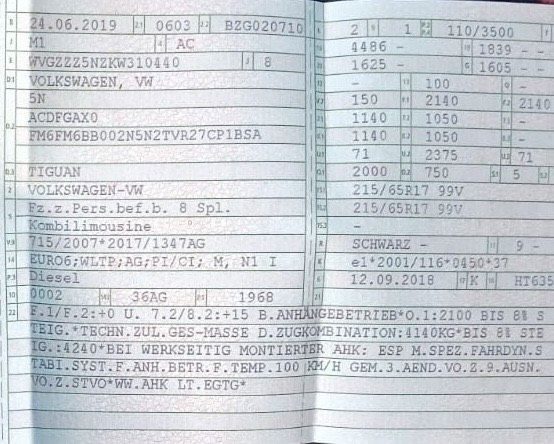 B 24.06.2019 2.1 0603 2.2 BZG020710
J M1 4 AC
E WVGZZZ5NZKW310440 3 8
D.1 VOLKSWAGEN, VW
5N
D.2 ACDFGAX0
FM6FM6BB002N5N2TVR27CP1BSA
D.3 TIGUAN
2 VOLKSWAGEN-VW
5 Fz.z.Pers.bef.b. 8 Spl.
Kombilimousine
V.9 715/2007*2017/1347AG
14 EURO6;WLTP;AG;PI/CI; M, N1 I
P.3 Diesel
10 0002 14.1 36AG P.1 1968
L 2 9 1 P.2 P.4 110/3500 T
18 4486 - 19 1839 - -
20 1625 - G 1605 - -
12 - 13 100 Q -
V.7 150 F.1 2140 F.2 2140
7.1 1140 7.2 1050 7.3 -
8.1 1140 8.2 1050 8.3 -
U.1 71 U.2 2375 U.3 71
O.1 2000 O.2 750 S.1 5 S.2
15.1 215/65R17 99V
15.2 215/65R17 99V
15.3 -
R SCHWARZ - 11 9 -
K e1*2001/116*0450*37
6 12.09.2018 17 K 16 HT635
21
22 F.1/F.2:+0 U. 7.2/8.2:+15 B.ANHÄNGEBETRIEB*O.1:2100 BIS 8% S
TEIG.*TECHN.ZUL.GES-MASSE D.ZUGKOMBINATION:4140KG*BIS 8% STE
IG.:4240*BEI WERKSEITIG MONTIERTER AHK: ESP M.SPEZ.FAHRDYN.S
TABI.SYST.F.ANH.BETR.F.TEMP.100 KM/H GEM.3.AEND.VO.Z.9.AUSN.
VO.Z.STVO*WW.AHK LT.EGTG*